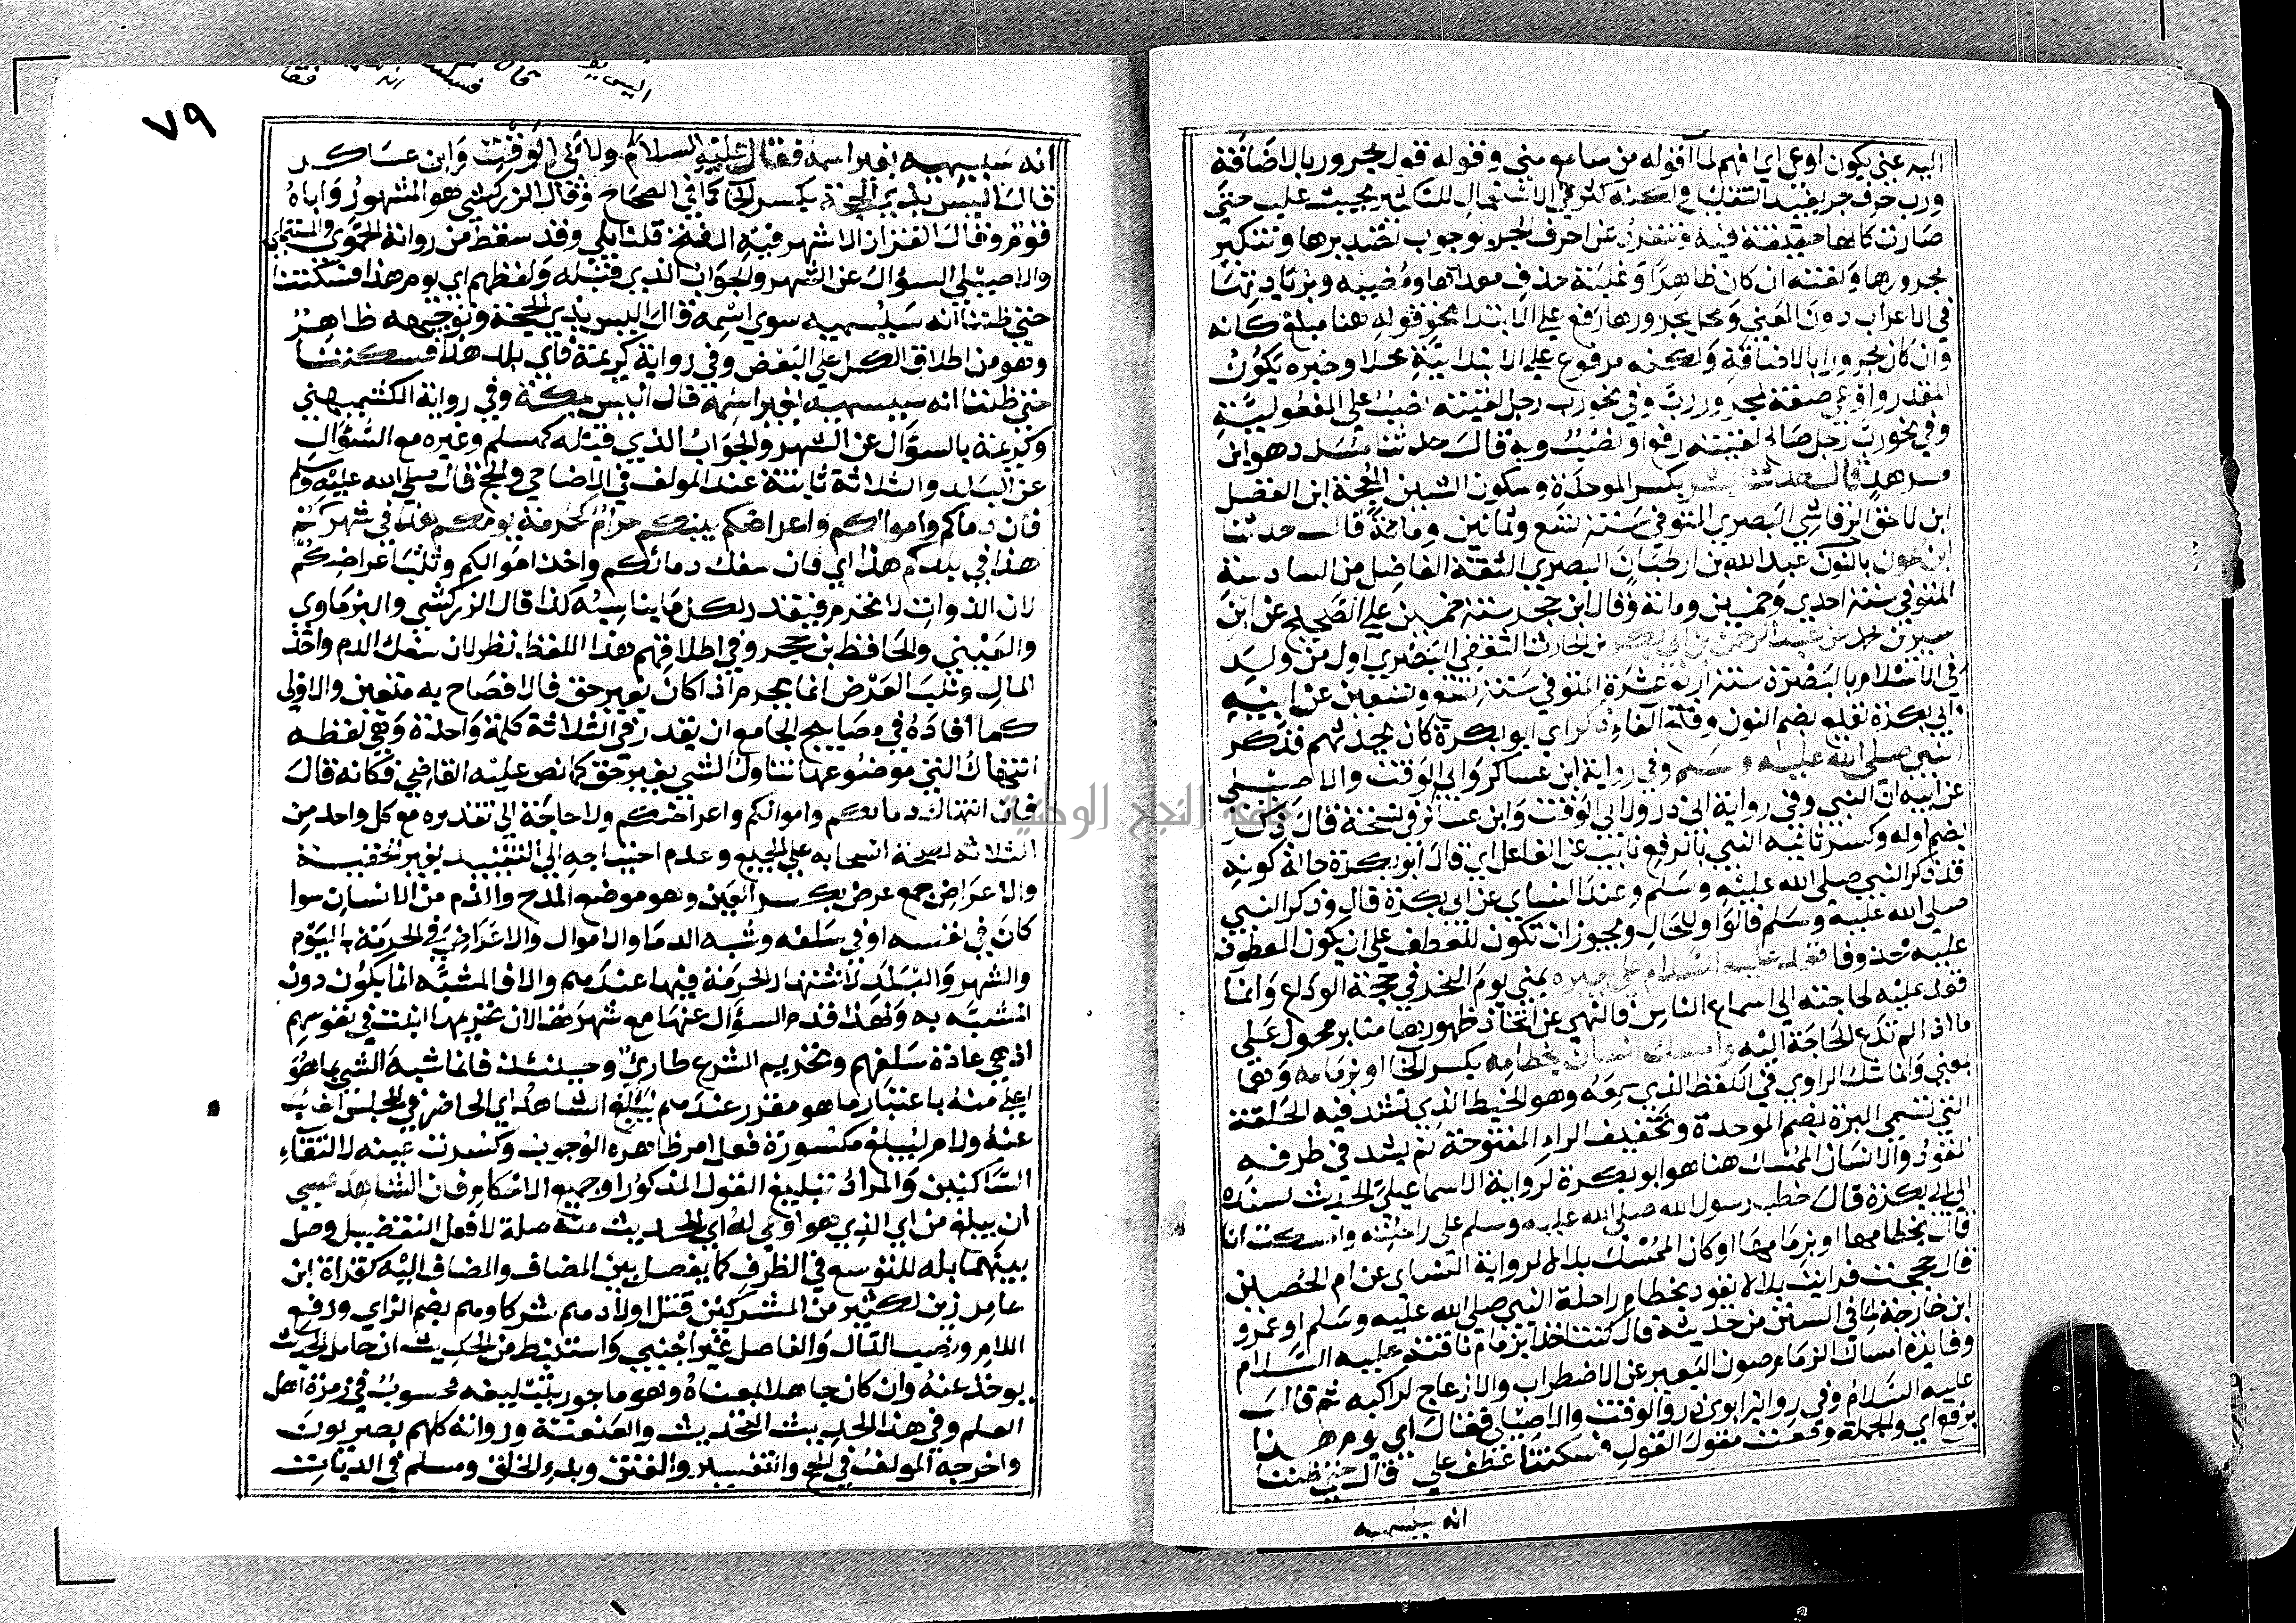 اليه عني يكون اوعى اي افهم لما اقوله من سامع مني وقوله قول مجرور بالاضافة
ورب حرف جر يفيد التقليل ولكنه كثر في الاستعمال للتكثير بحيث غلب حتى
صارت كانها حقيقة فيه وتنفرد عن احرف الجر بوجوب تصديرها وتنكير
مجرورها ونعته ان كان ظاهرا وغلبة حذف معداها ومضيه وبزيادتها
في الاعراب دون المعني ومحل مجرورها رفع على الابتدا نحو قوله هنا مبلغ كانه
وان كان مجرورا بالاضافة ولكنه مرفوع على الابتدائية محلا وخبره يكون
المقدر واوعى صفة لمجرور رب وفي نحو رب رجل لقيته نصب على المفعولية
وفي نحو رب رجل صالح لقيته رفع او نصب وبه قال حدثنا مسدد هو ابن
مسرهد قال حدثنا بشر بكسر الموحدة وسكون الشين المعجمة ابن المفضل
ابن لاحق الرقاشي البصري المتوفي سنة تسع وثمانين ومائة قال حدثنا
ابن عون بالنون عبد الله بن ارطبان البصري الثقة الفاضل من السادسة
المتوفي سنة احدي وخمسين ومائة وقال ابن حجر سنة خمسين على الصحيح عن ابن
سيرين محمد عن عبد الرحمن بن ابي بكرة بن الحارث الثقفي البصري اول من ولد
في الاسلام بالبصرة سنة اربع عشرة المتوفي سنة تسع وتسعين عن ابيه
ابي بكرة نفيع بضم النون وفتح الفاء ذكر اي ابو بكرة كان يحدثهم فذكر
النبي صلى الله عليه وسلم وفي رواية ابن عساكر وابي الوقت والاصيلي
عن ابيه ان النبي وفي رواية ابي ذر ولابي الوقت وابن عساكر في نسخة قال ذكر
بضم اوله وكسر ثانيه النبي بالرفع نايب عن الفاعل اي قال ابو بكرة حالة كونه
قد ذكر النبي صلى الله عليه وسلم وعند النساي عن ابي بكرة قال وذكر النبي
صلى الله عليه وسلم فالواو للحال ويجوز ان تكون للعطف على ان يكون المعطوف
عليه محذوفا قعد عليه السلام على بعيره بمني يوم النحر في حجة الوداع وانما
قعد عليه لحاجته الى اسماع الناس فالنهي عن اتخاذ ظهورها منابر محمول على
ما اذا لم تدع الحاجة اليه وامسك انسان بخطامه بكسر الخا او بزمامه وهما
بمعني وانما شك الراوي في اللفظ الذي سمعه وهو الخيط الذي تشد فيه الحلقة
التي تسمي البرة بضم الموحدة وتخفيف الراء المفتوحة ثم يشد في طرفه
المقود والانسان الممسك هنا هو ابو بكرة لرواية الاسماعيلي الحديث بسنده
الى ابي بكرة قال خطب رسول الله صلى الله عليه وسلم على راحلته وامسكت انا
قال بخطامها او بزمامها او كان الممسك بلالا لرواية النساي عن ام الحصين
قال حججت فرايت بلالا يقود بخطام راحلة النبي صلى الله عليه وسلم او عمرو
ابن خارجة لما في السنن من حديثه قال كنت اخذ بزمام ناقته عليه السلام
وفايدة امساك الزمام صون البعير عن الاضطراب والازعاج لراكبه ثم قال
عليه السلام وفي رواية ابوي ذر والوقت والاصيلي فقال اي يوم هذا
برفع اي والجملة وقعت مقول القول فسكتنا عطف على قال حتى ظننا
انه سيسميه
٧٩
انه سيسميه بغير اسمه فقال عليه السلام ولابي الوقت وابن عساكر
قال اليس بذي الحجة بكسر الحا كما في الصحاح وقال الزركشي هو المشهور واباه
قوم وقال القزاز الاشهر فيه الفتح قلت ابلي وقد سقط من رواية الحموي والمستملي
والاصيلي السؤال عن الشهر والجواب الذي قبله ولفظهم اي يوم هذا فسكتنا
حتي ظننا انه سيسميه سوي اسمه قال اليس بذي الحجة وتوجيهه ظاهر
وهو من اطلاق الكل على البعض وفي رواية كريمة فاي بلد هذا فسكتنا
حتي ظننا انه سيسميه بغير اسمه قال اليس بمكة وفي رواية الكشميهني
وكريمة بالسؤال عن الشهر والجواب الذي قبله كمسلم وغيره مع السؤال
عن البلد والثلاثة ثابتة عند المولف في الاضاحي والحج قال صلى الله عليه وسلم
فان دماكم واموالكم واعراضكم بينكم حرام كحرمة يومكم هذا في شهركم
هذا في بلدكم هذا اي فان سفك دمائكم واخذ اموالكم وثلب اعراضكم
لان الذوات لا تحرم فيقدر لكل ما يناسبه كذا قال الزركشي والبرماوي
والعيني والحافظ بن حجر وفي اطلاقهم هذا اللفظ نظر لان سفك الدم واخذ
المال وثلب العرض انما يحرم اذا كان بغير حق فالافصاح به متعين والاولى
كما افاده في مصابيح الجامع ان يقدر في الثلاثة كلمة واحدة وهي لفظة
انتهاك التي موضوعها تناول الشي بغير حق كما نص عليه القاضي فكانه قال
فان انتهاك دماءكم واموالكم واعراضكم ولا حاجة الى تقديره مع كل واحد من
الثلاثة لصحة انسحابه على الجميع وعدم احتياجه الى التقييد بغير الحقية
والاعراض جمع عرض بكسر العين وهو موضع المدح والذم من الانسان سوا
كان في نفسه او في سلفه وشبه الدما والاموال والاعراض في الحرمة باليوم
والشهر والبلد لاشتهار الحرمة فيها عندهم والا فالمشبه انما يكون دون
المشبه به ولهذا قدم السؤال عنها مع شهرتها لان تحريمها اثبت في نفوسهم
اذ هي عادة سلفهم وتحريم الشرع طارئ وحينئذ فانما شبه الشي بما هو
اعلى منه باعتبار ما هو مقرر عندهم ليبلغ الشاهد اي الحاضر في المجلس الغايب
عنه ولام ليبلغ مكسورة فعل امر ظاهره الوجوب وكسرت غينه لالتقاء
الساكنين والمراد تبليغ القول المذكور او جميع الاحكام فان الشاهد عسي
ان يبلغ من اي الذي هو اوعى له اي الحديث منه صلة لافعل التفضيل وصل
بينهما بله للتوسع في الظرف كما يفصل بين المضاف والمضاف اليه كقراة ابن
عامر زين لكثير من المشركين قتل اولادهم شركاوهم بضم الزاي ورفع
اللام ونصب الدال والفاصل غير اجنبي واستنبط من الحديث ان حامل الحديث
يوخذ عنه وان كان جاهلا بمعناه وهو ماجور بتبليغه محسوب في زمرة اهل
العلم وفي هذا الحديث التحديث والعنعنة ورواته كلهم بصريون
واخرجه المولف في الحج والتفسير والفتن وبدء الخلق ومسلم في الديات
جامعة النجاح الوطنية